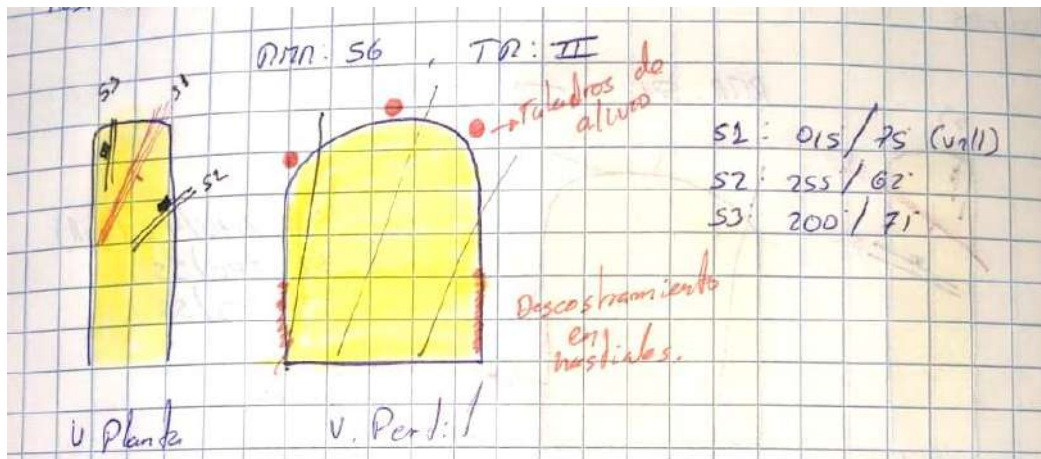 RMR: 56 , TR: II
S3
S1
S2
Taladros de
alivio
S1: 015/75 (vall)
S2: 255/62°
S3: 200/75
Descostramiento
en
hastiales.
V Planta
V. Perfil